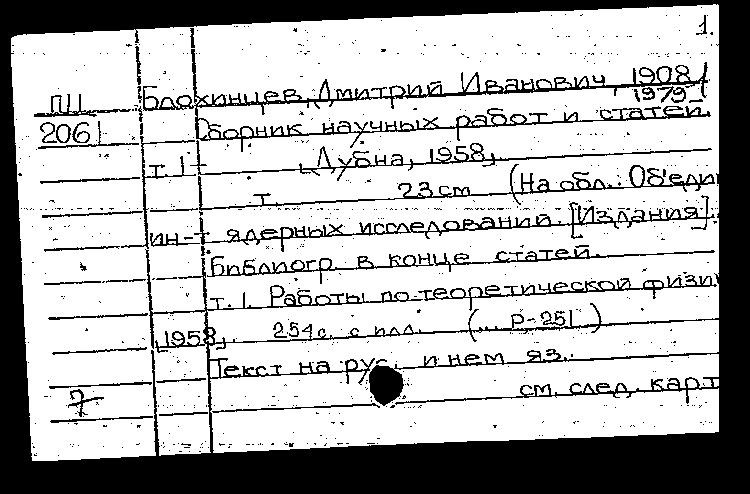 1.
П11 Блохинцев, Дмитрий Иванович, 1908/1979
2061 Сборник научных работ и статей.
т. 1- Дубна, 1958,
т. 23 см (На обл.: Объедин
ин-т ядерных исследований. [Издания].
Библиогр. в конце статей.
т. 1. Работы по теоретической физи
1958, 254 с. с илл. (... Р-251)
Текст на рус. и нем яз.
7 см. след. карт